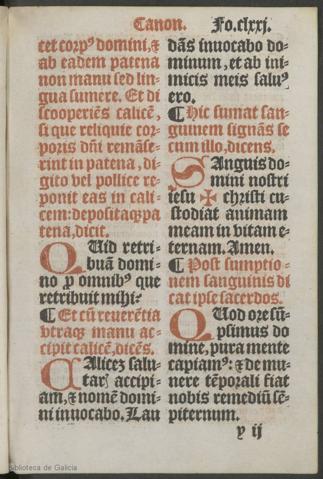 Canon. Fo.clxxj.
tet corpꝰ domini, ⁊
ab eadem patena
non manu sed lin-
gua sumere. Et di
scooperiẽs calicẽ,
si que reliquie cor-
poris dñi remãse-
rint in patena, di-
gito vel pollice re-
ponit eas in cali-
cem: depositaqꝫ pa
tena, dicit.
QUid retri-
buã domi-
no ꝓ omnibꝰ que
retribuit mihi?
¶ Et cũ reuerẽtia
vtraqꝫ manu ac-
cipit calicẽ, dicẽs.
CAlicez salu-
tarꝭ accipi-
am, ⁊ nomẽ domi-
ni inuocabo. Lau
dãs inuocabo do-
minum, et ab ini-
micis meis saluꝰ
ero.
¶ Hic sumat san-
guinem signãs se
cum illo, dicens.
SAnguis do-
mini nostri
iesu ✠ christi cu-
stodiat animam
meam in vitam e-
ternam. Amen.
¶ Post sumptio-
nem sanguinis di
cat ipse sacerdos.
QUod ore sũ-
psimus do
mine, pura mente
capiamꝰ: ⁊ de mu-
nere tẽporali fiat
nobis remediũ sẽ-
piternum.
y ij
Biblioteca de Galicia